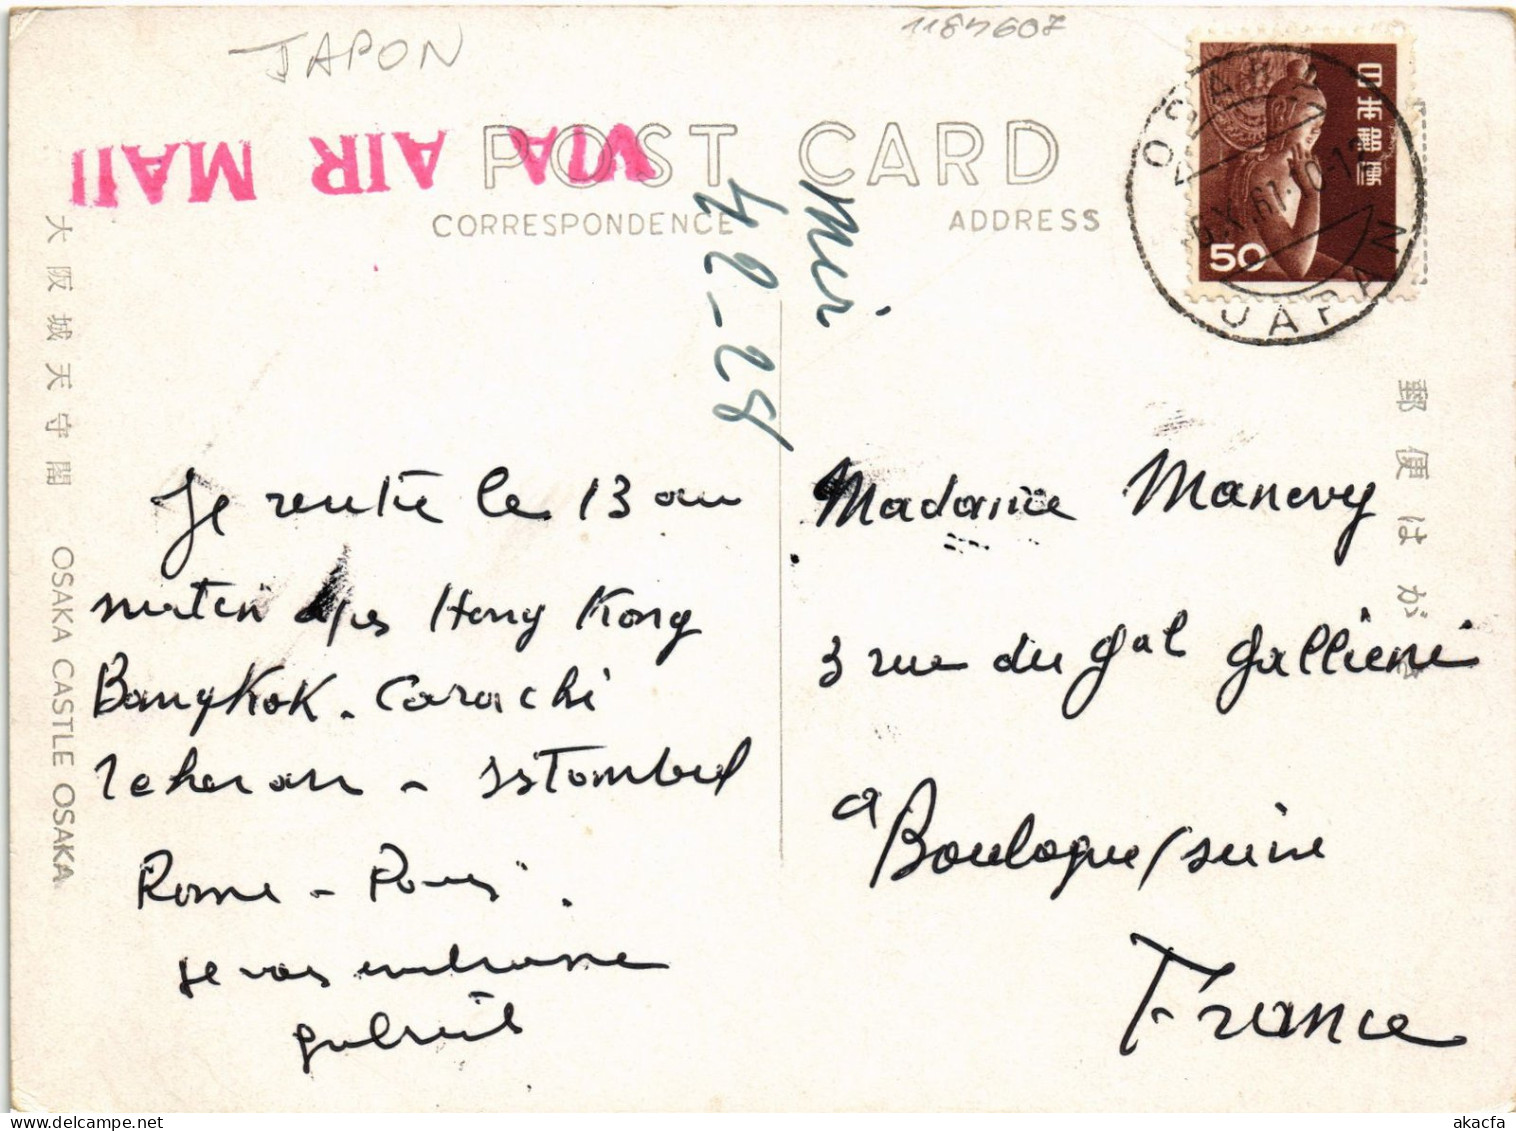 JAPON
1184607
VIA AIR MAIL
POST CARD
CORRESPONDENCE
ADDRESS
日本郵便
50
OSAKA
JAPAN
大阪城天守閣 OSAKA CASTLE OSAKA
郵便はがき
42-28
Je rentre le 13 au
matin après Hong Kong
Bangkok. Carachi
Teheran - Istambul
Rome - Paris.
Je vous embrasse
Madame Manevy
3 rue du Gal Gallieni
a Boulogne/Seine
France
akacfa